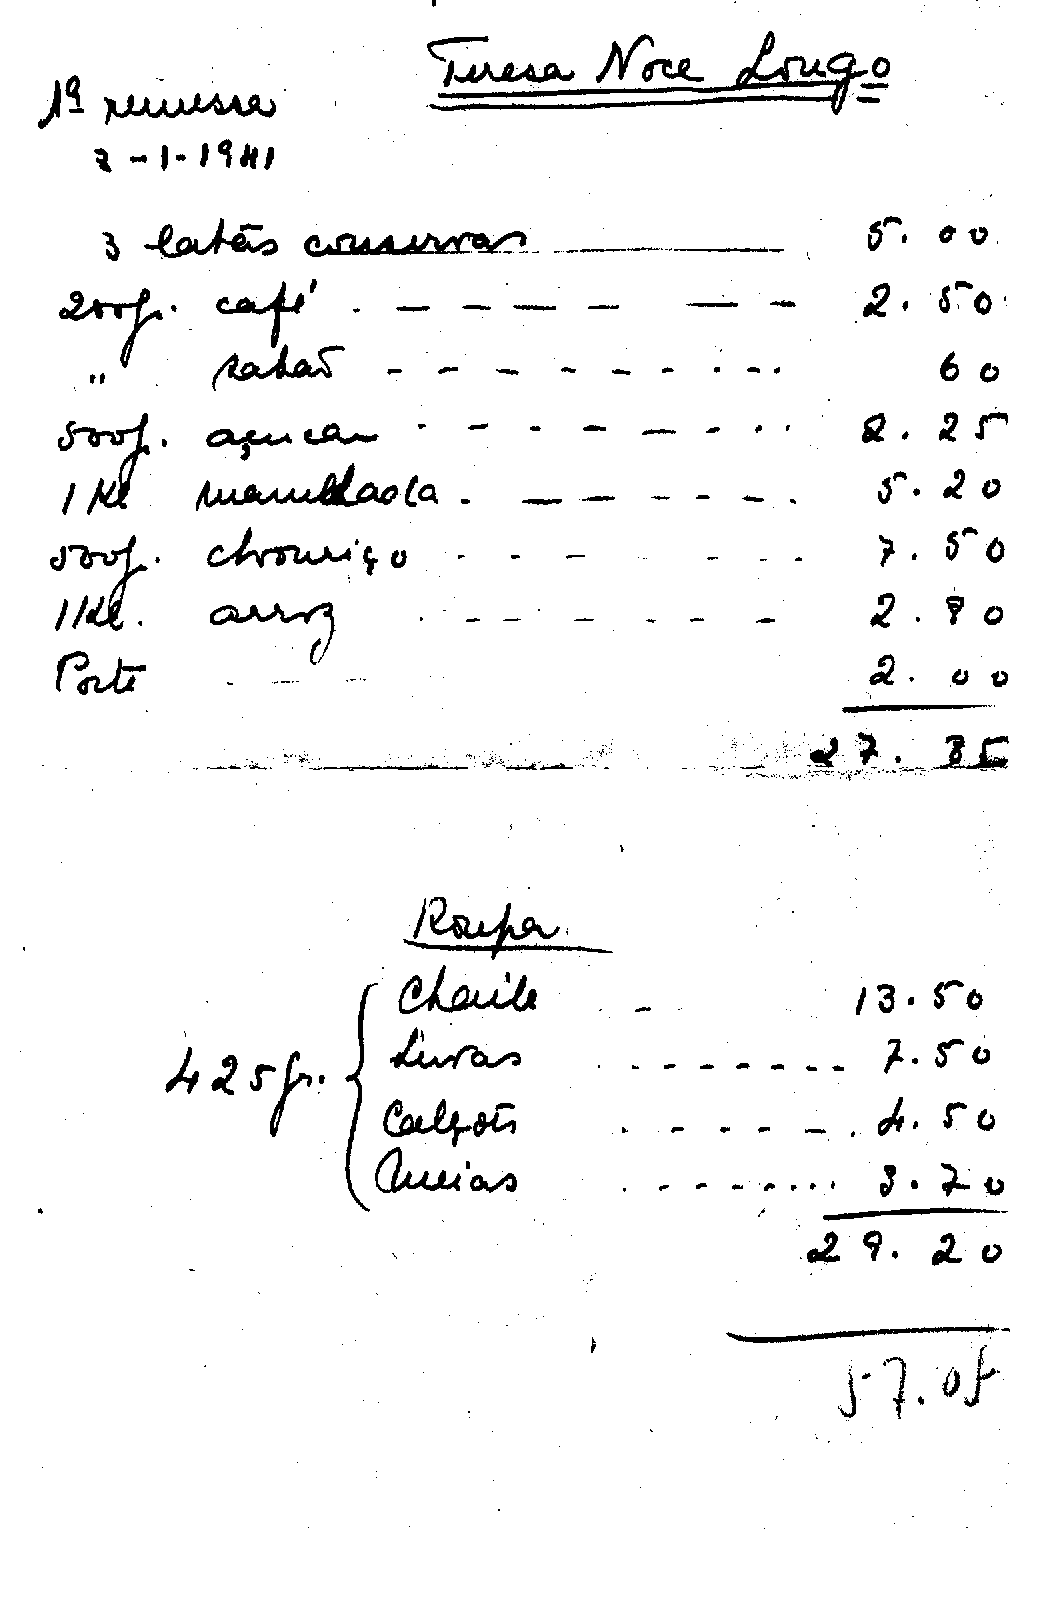 Teresa Noce Longo
1ª remessa
7-1-1941
3 latas conservas 5.00
200gr. café . — — — — — — 2.50
" sabão - - - - - - - - 60
500gr. açucar - - - - - - - 2.25
1 Kl marmelada . — — — - - - . 5.20
500gr. chouriço - - - - - - - 7.50
1 Kl. arroz . - - - - - - 2.80
Porte . — - 2.00
27.85
Roupa
425gr.
Chaile . - 13.50
Luvas . - - - - - - - 7.50
Calções . - - - - . 4.50
Meias . . - - - - . . . 3.70
29.20
57.05